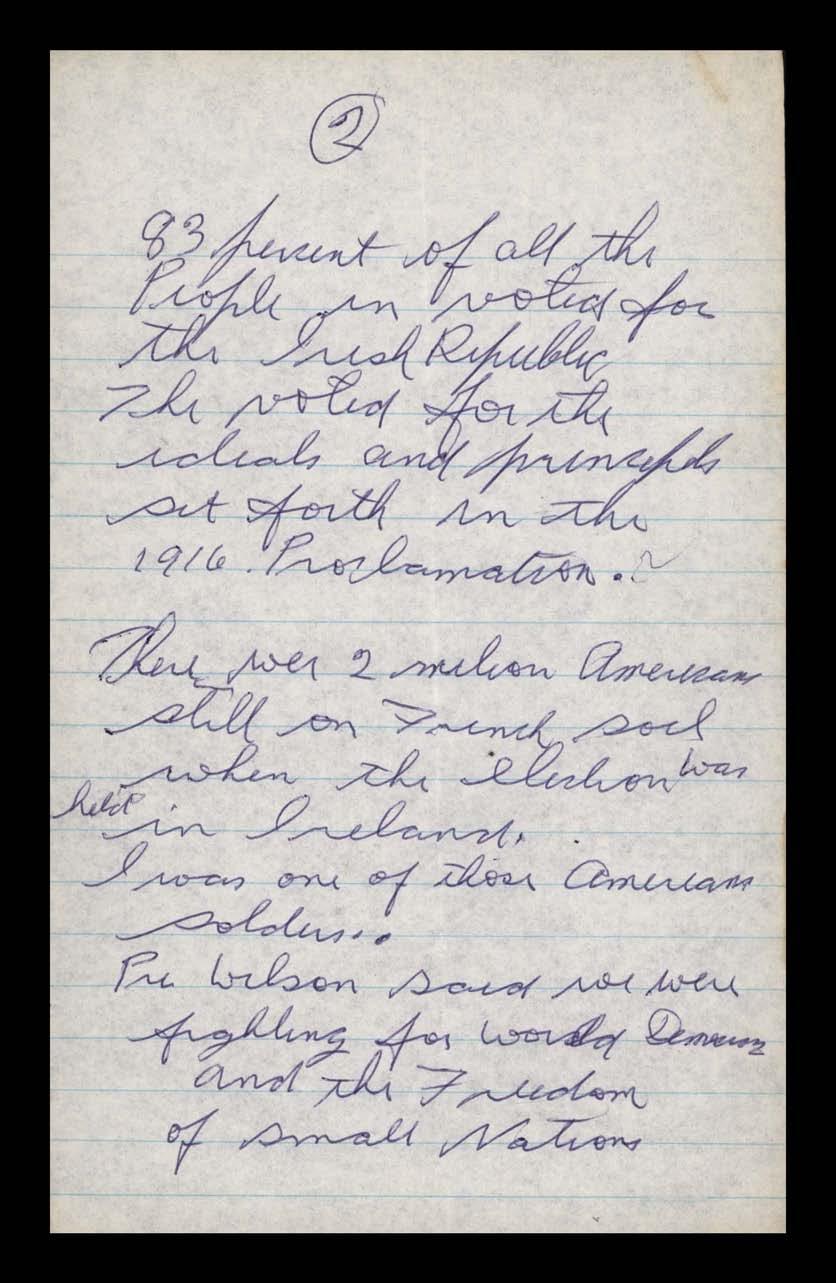 2
83 percent of all the
People in voted for
the Irish Republic
The voted for the
ideals and princepls
set forth in the
1916. Proclamation.
There wer 2 milion Americans
still on French soil
when the election was
held in Ireland.
I was one of those Americans
solders..
Pre Wilson said we were
fighting for World Democracy
and the Freedom
of small Nations